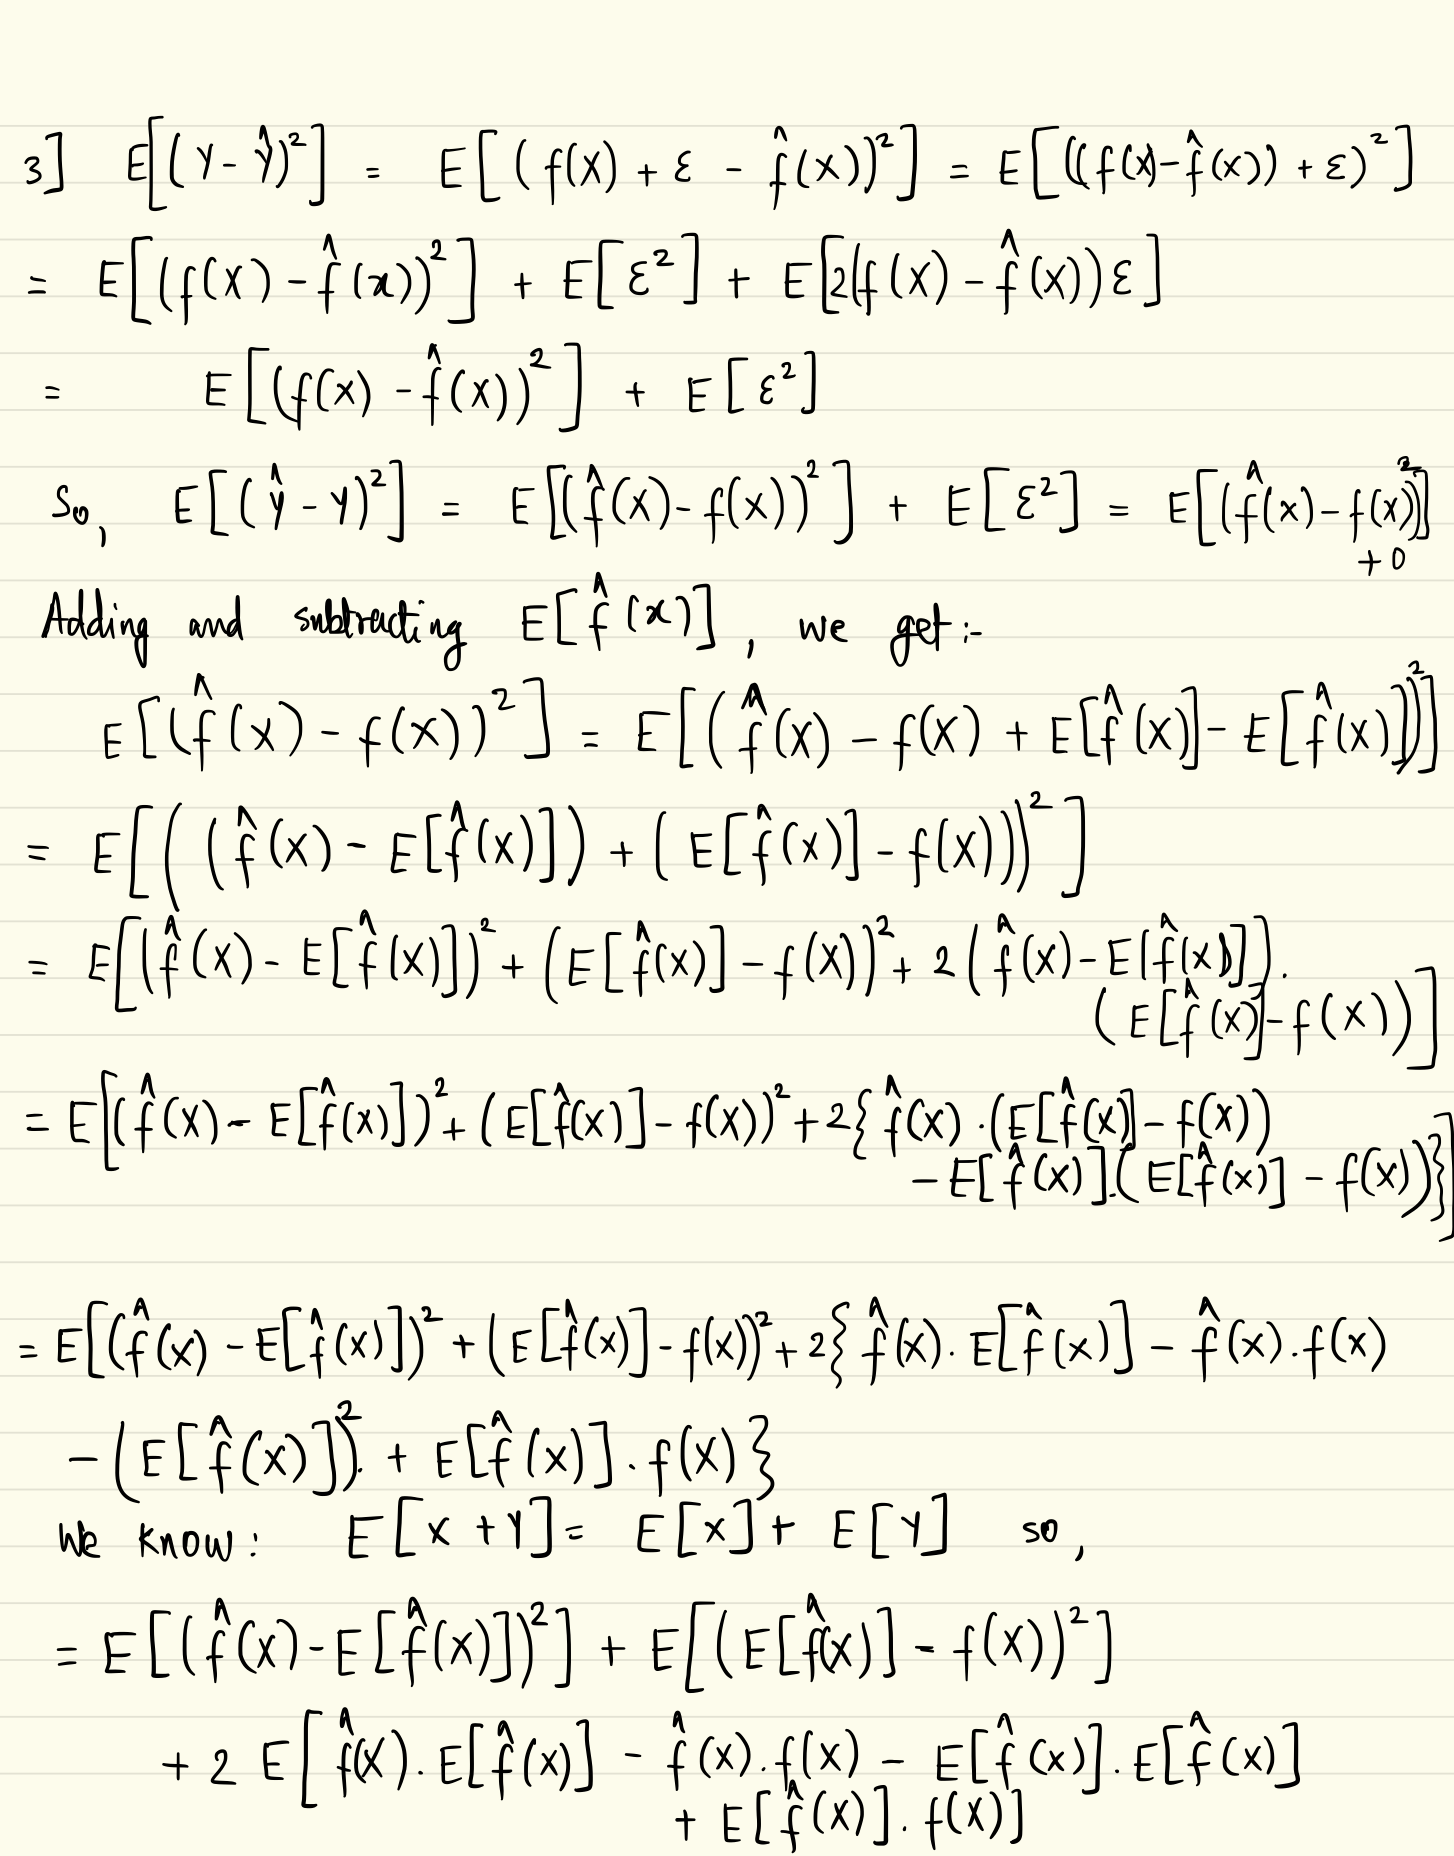 3] E[(Y - Ŷ)²] = E[(f(X) + ε - f̂(x))²] = E[((f(x) - f̂(x)) + ε)²]
= E[(f(X) - f̂(x))²] + E[ε²] + E[2(f(X) - f̂(X))ε]
= E[(f(x) - f̂(x))²] + E[ε²]
So, E[(Ŷ - Y)²] = E[(f̂(X) - f(x))²] + E[ε²] = E[(f̂(x) - f(x))²]
+ 0
Adding and subtracting E[f̂(x)], we get :-
E[(f̂(x) - f(x))²] = E[(f̂(X) - f(X) + E[f̂(X)] - E[f̂(X)])²]
= E[((f̂(X) - E[f̂(X)]) + (E[f̂(X)] - f(X)))²]
= E[(f̂(X) - E[f̂(X)])² + (E[f̂(x)] - f(X))² + 2(f̂(X) - E[f̂(x)]).
(E[f̂(X)] - f(X))]
= E[(f̂(X) - E[f̂(X)])² + (E[f̂(X)] - f(X))² + 2{f̂(X) . (E[f̂(X)] - f(X))
- E[f̂(X)].(E[f̂(x)] - f(X))}]
= E[(f̂(x) - E[f̂(X)])² + (E[f̂(X)] - f(X))² + 2{f̂(X). E[f̂(x)] - f̂(x).f(x)
- (E[f̂(X)])². + E[f̂(X)] . f(X)}
We know: E[X + Y] = E[X] + E[Y] so,
= E[(f̂(X) - E[f̂(X)])²] + E[(E[f̂(X)] - f(X))²]
+ 2 E[f̂(X). E[f̂(X)] - f̂(X).f(X) - E[f̂(x)]. E[f̂(X)]
+ E[f̂(X)]. f(X)]